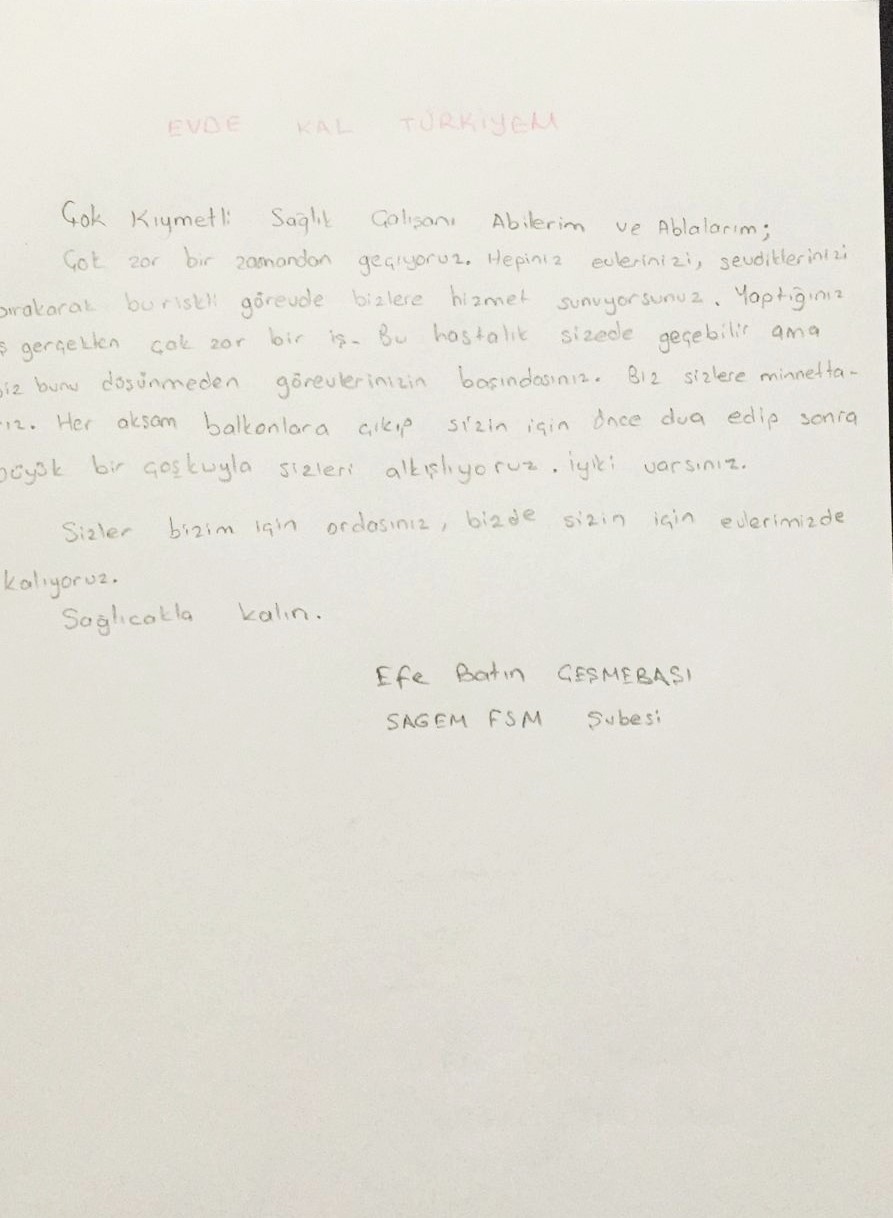 EVDE KAL TÜRKİYEM
Çok Kıymetli Sağlık Çalışanı Abilerim ve Ablalarım;
Çok zor bir zamandan geçiyoruz. Hepiniz evlerinizi, sevdiklerinizi
bırakarak bu riskli görevde bizlere hizmet sunuyorsunuz. Yaptığınız
ş gerçekten çok zor bir iş. Bu hastalık sizede geçebilir ama
siz bunu düşünmeden görevlerinizin başındasınız. Biz sizlere minnetta-
rız. Her akşam balkonlara çıkıp sizin için önce dua edip sonra
büyük bir coşkuyla sizleri alkışlıyoruz. İyiki varsınız.
Sizler bizim için ordasınız, bizde sizin için evlerimizde
kalıyoruz.
Sağlıcakla kalın.
Efe Batın ÇEŞMEBAŞI
SAGEM FSM Şubesi